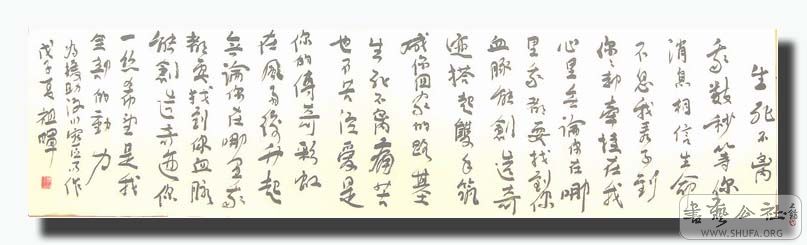 生死不离
我数秒等你
消息相信生命
不息我看不到
你你却牵挂在我
心里无论你在哪
里我都要找到你
血脉能創造奇
迹搭起雙手筑
成你回家的路基
生死不离痛苦
也不哭泣爱是
你的傳奇彩虹
在风雨後升起
无论你在哪里我
都要找到你血脉
能創造奇迹你
一丝希望是我
全部的動力
为援助汶川灾区作
戊子夏祖暉
書艺公社
WWW.SHUFA.ORG